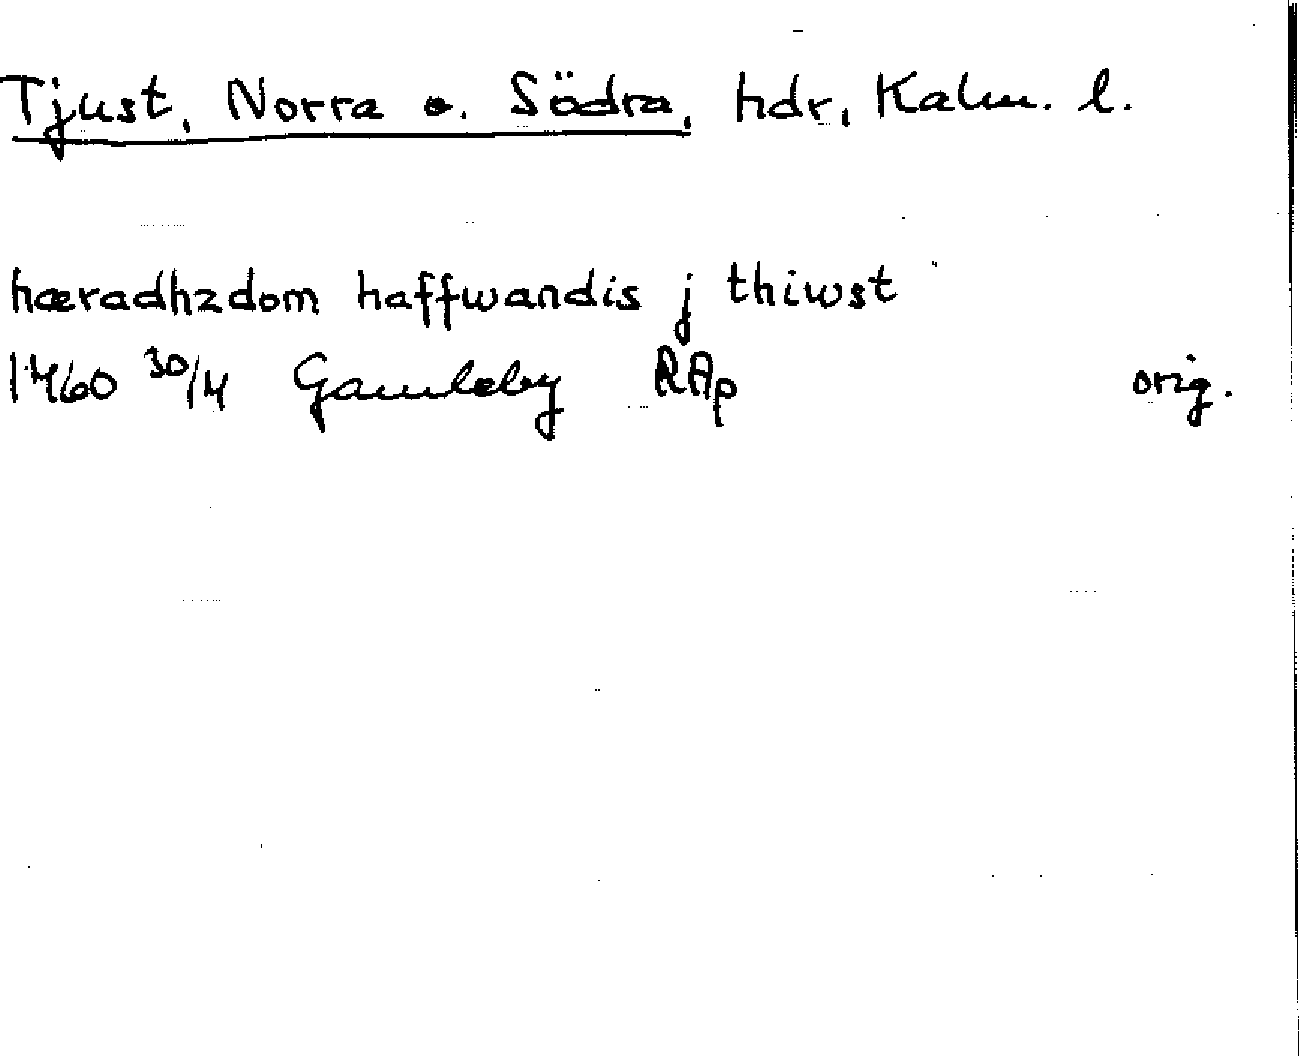 Tjust, Norra o. Södra, hdr, Kalm. l.
hæradhzdom haffwandis j thiwst
1460 30/4 Gamleby RAp orig.